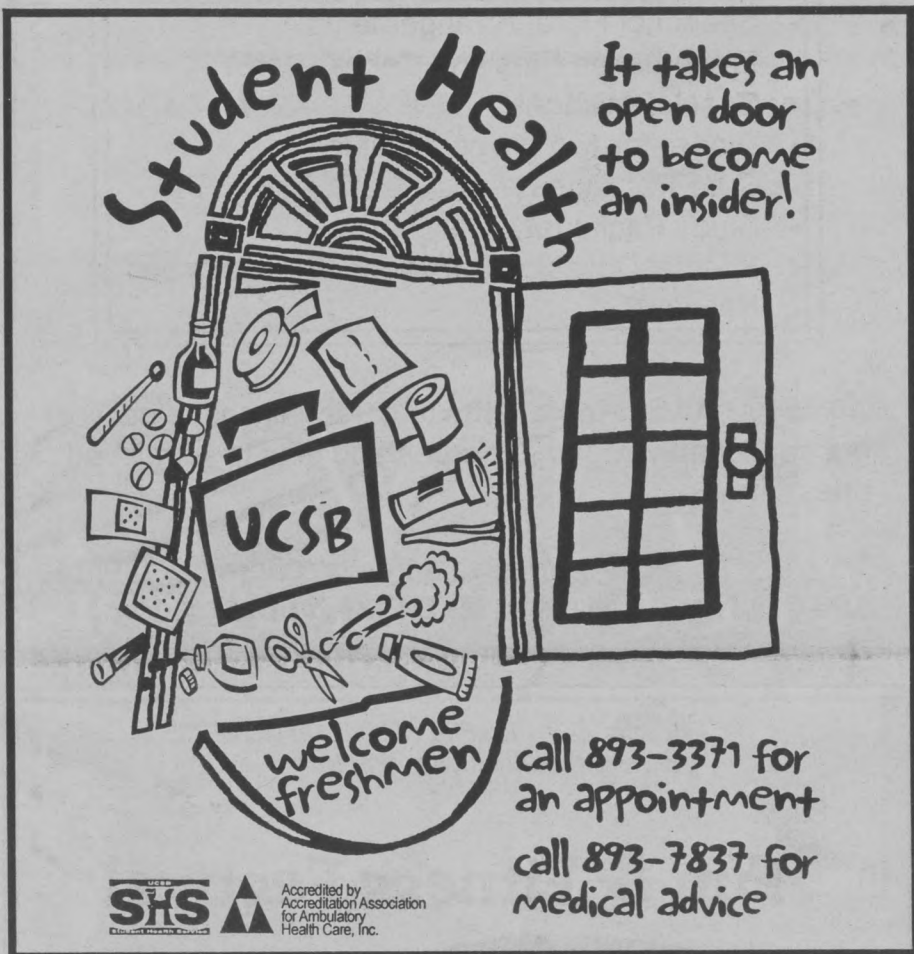 Student Health
It takes an
open door
to become
an insider!
UCSB
welcome
freshmen
call 893-3371 for
an appointment
call 893-7837 for
medical advice
UCSB
SHS
Student Health Service
Accredited by
Accreditation Association
for Ambulatory
Health Care, Inc.